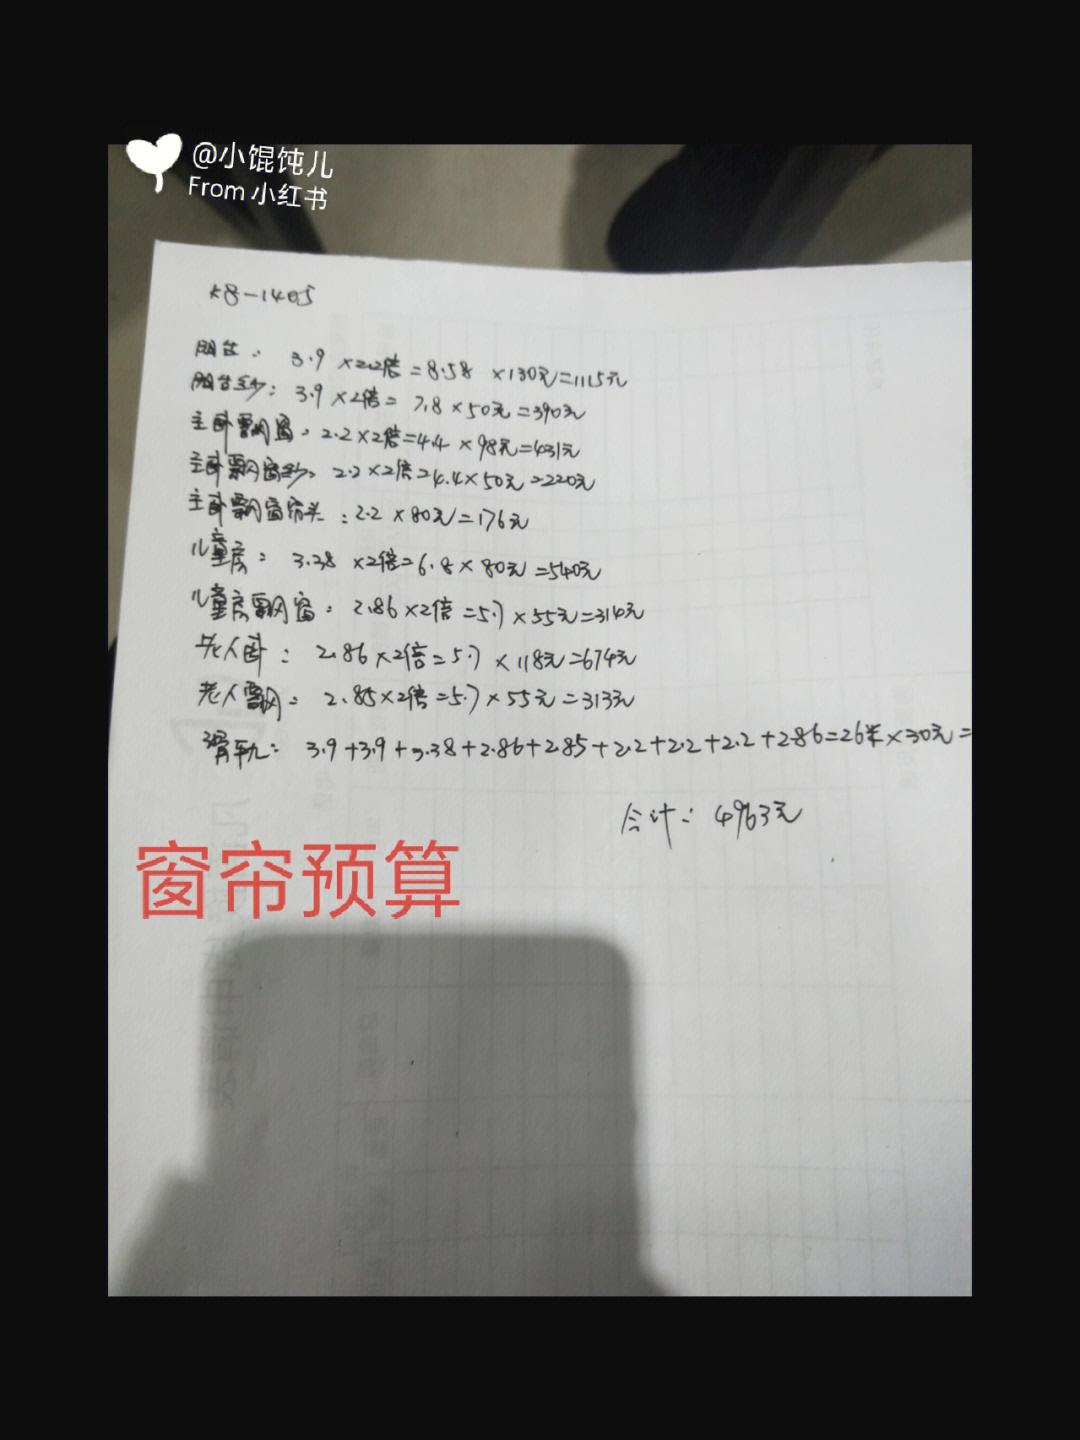 @小馄饨儿
From 小红书
K8-1405
阳台: 3.9×2.2倍=8.58 ×130元=1115元
阳台纱: 3.9×2倍= 7.8×50元=390元
主卧飘窗: 2.2×2倍=4.4×98元=431元
主卧飘窗纱: 2.2×2倍=4.4×50元=220元
主卧飘窗帘头: 2.2×80元=176元
儿童房: 3.38×2倍=6.8×80元=540元
儿童房飘窗: 2.86×2倍=5.7×55元=314元
老人卧: 2.86×2倍=5.7×118元=674元
老人飘: 2.85×2倍=5.7×55元=313元
滑轨: 3.9+3.9+3.38+2.86+2.85+2.2+2.2+2.2+2.86=26米×30元=
合计: 4963元
窗帘预算